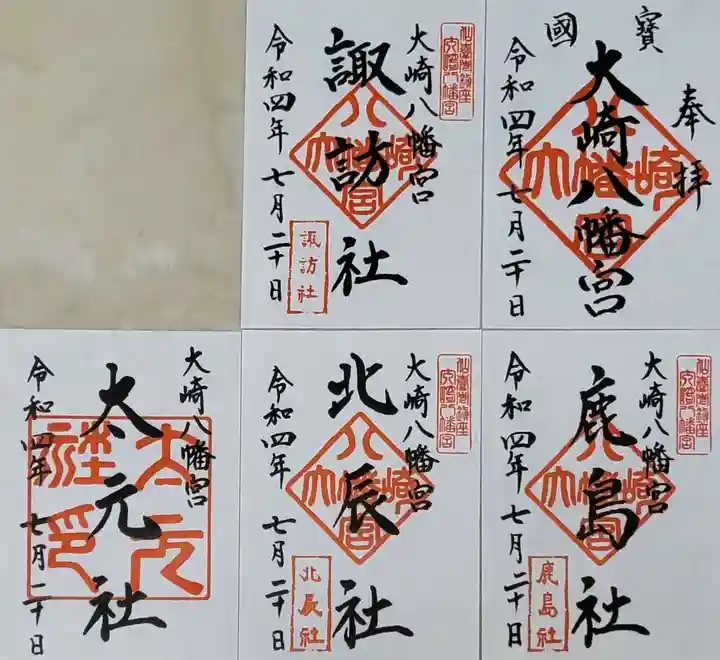 國寶
奉拝
大崎八幡宮
令和四年 七月二十日
大崎八幡宮
諏訪社
諏訪社
令和四年 七月二十日
大崎八幡宮
鹿島社
鹿島社
令和四年 七月二十日
大崎八幡宮
北辰社
北辰社
令和四年 七月二十日
大崎八幡宮
太元社
令和四年 七月二十日